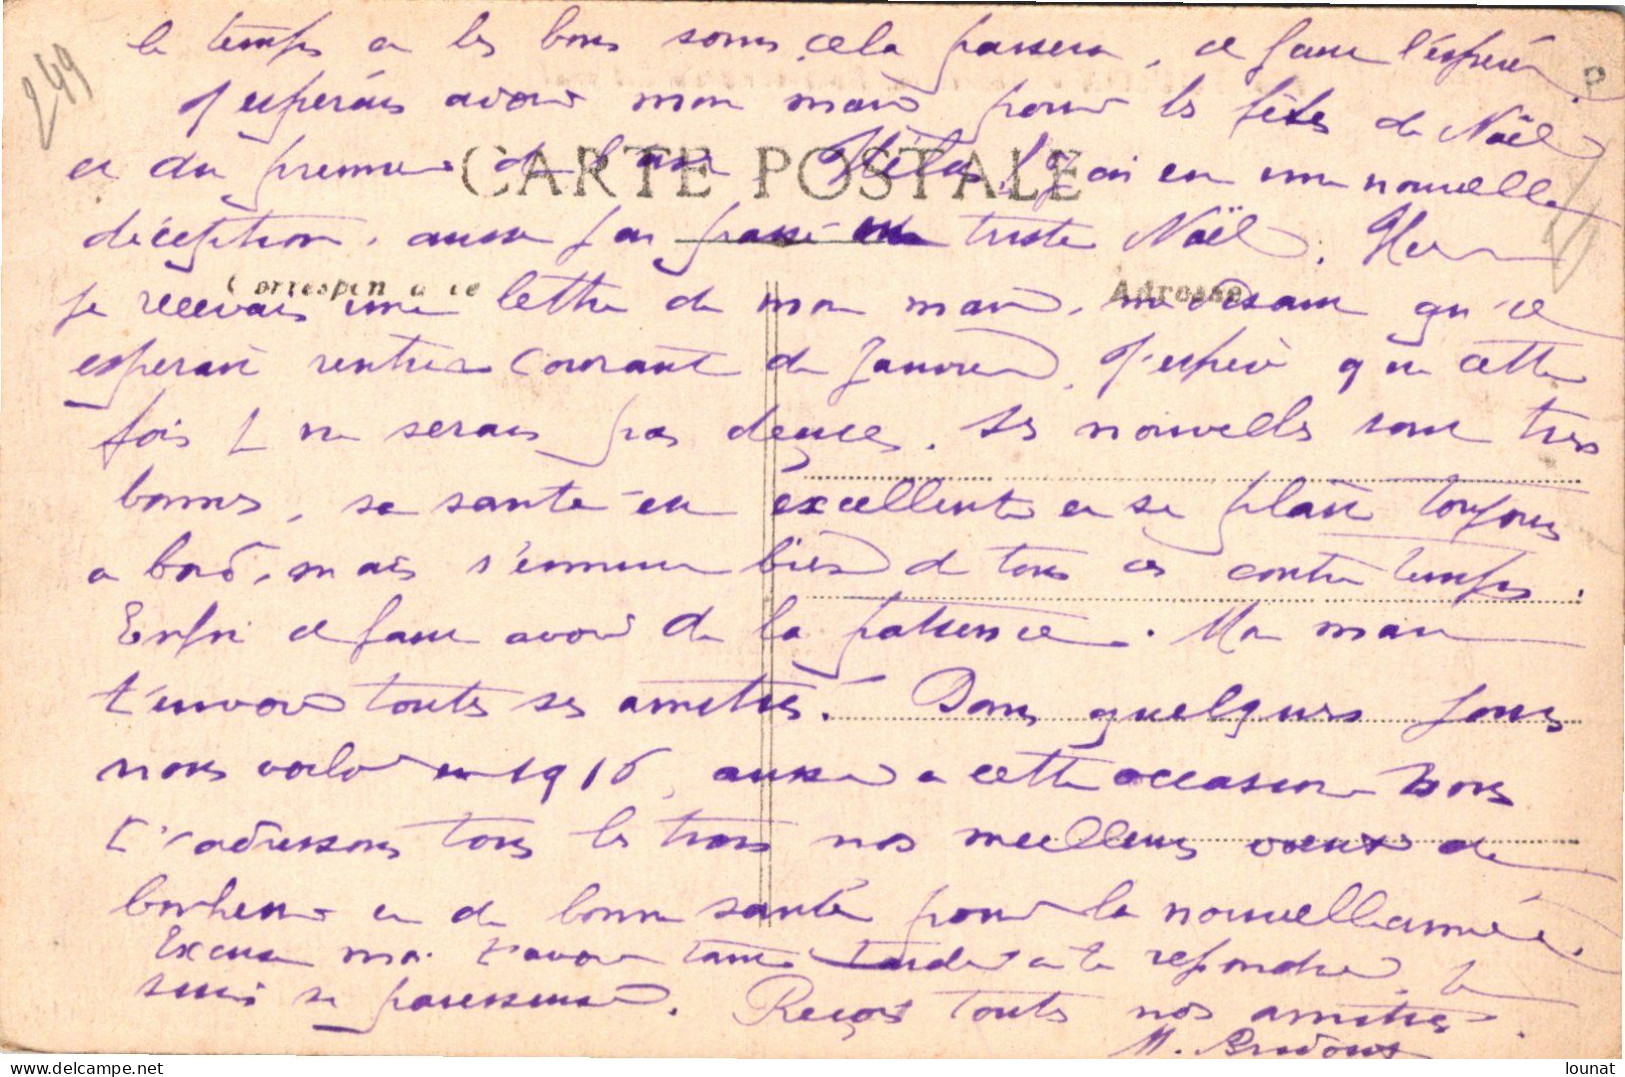 249
le temps et les bons soins, cela passera, il faut l'espérer.
J'espérais avoir mon mari pour les fêtes de Noël
P
CARTE POSTALE
et du premier de l'an. Hélas! J'ai eu une nouvelle
déception, aussi j'ai passé un triste Noël. Hier
Correspondance
Adresse
je recevais une lettre de mon mari, me disant qu'il
espérait rentrer courant de Janvier, J'espère que cette
fois je ne serais pas déçue. Ses nouvelles sont très
bonnes, sa santé est excellente et se plaît toujours
à bord, mais s'ennuie bien de tous ces contre temps.
Enfin il faut avoir de la patience. Ma maman
t'envoie toutes ses amitiés. Dans quelques jours
nous voilà en 1916, aussi à cette occasion nous
t'adressons tous les trois nos meilleurs voeux de
bonheur et de bonne santé pour la nouvelle année.
Excuse moi t'avoir tant tardé à te répondre, je
suis si paresseuse. Reçois toutes nos amitiés.
M.
©delcampe.net
lounat